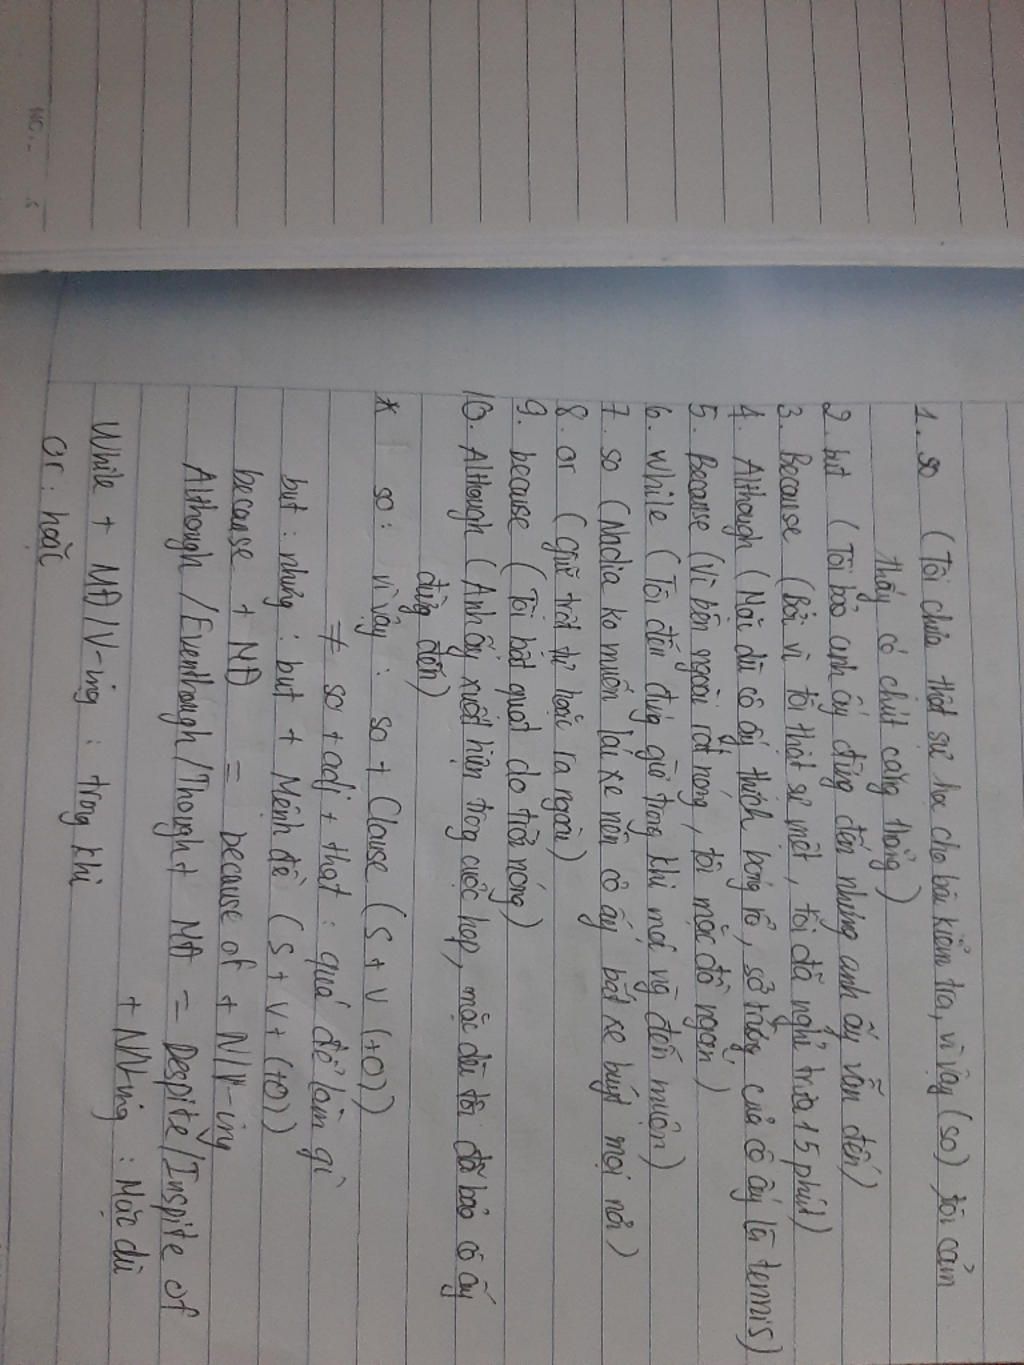 1. so (Tôi chưa thật sự học cho bài kiểm tra, vì vậy (so) tôi cảm
thấy có chút căng thẳng)
2. but (Tôi bảo anh ấy đừng đến nhưng anh ấy vẫn đến)
3. Because (Bởi vì tôi thật sự mệt, tôi đã nghỉ trưa 15 phút)
4. Although (Mặc dù cô ấy thích bóng rổ, sở trường của cô ấy là tennis)
5. Because (Vì bên ngoài rất nóng, tôi mặc đồ ngắn)
6. While (Tôi đến đúng giờ trong khi mọi ng đến muộn)
7. so (Nadia ko muốn lái xe nên cô ấy bắt xe buýt mọi nơi)
8. or (Giữ trật tự hoặc ra ngoài)
9. because (Tôi bật quạt do trời nóng)
10. Although (Anh ấy xuất hiện trong cuộc họp, mặc dù tôi đã bảo cô ấy
đừng đến)
* so: vì vậy: so + Clause (S + V (+O))
≠ so + adj + that: quá để làm gì
but: nhưng: but + Mệnh đề (S + V + (+O))
because + MĐ = because of + N/V-ing
Although/Eventhough/Though + MĐ = Despite/Inspite of
+ N/V-ing: Mặc dù
While + MĐ/V-ing: trong khi
or: hoặc
NO.